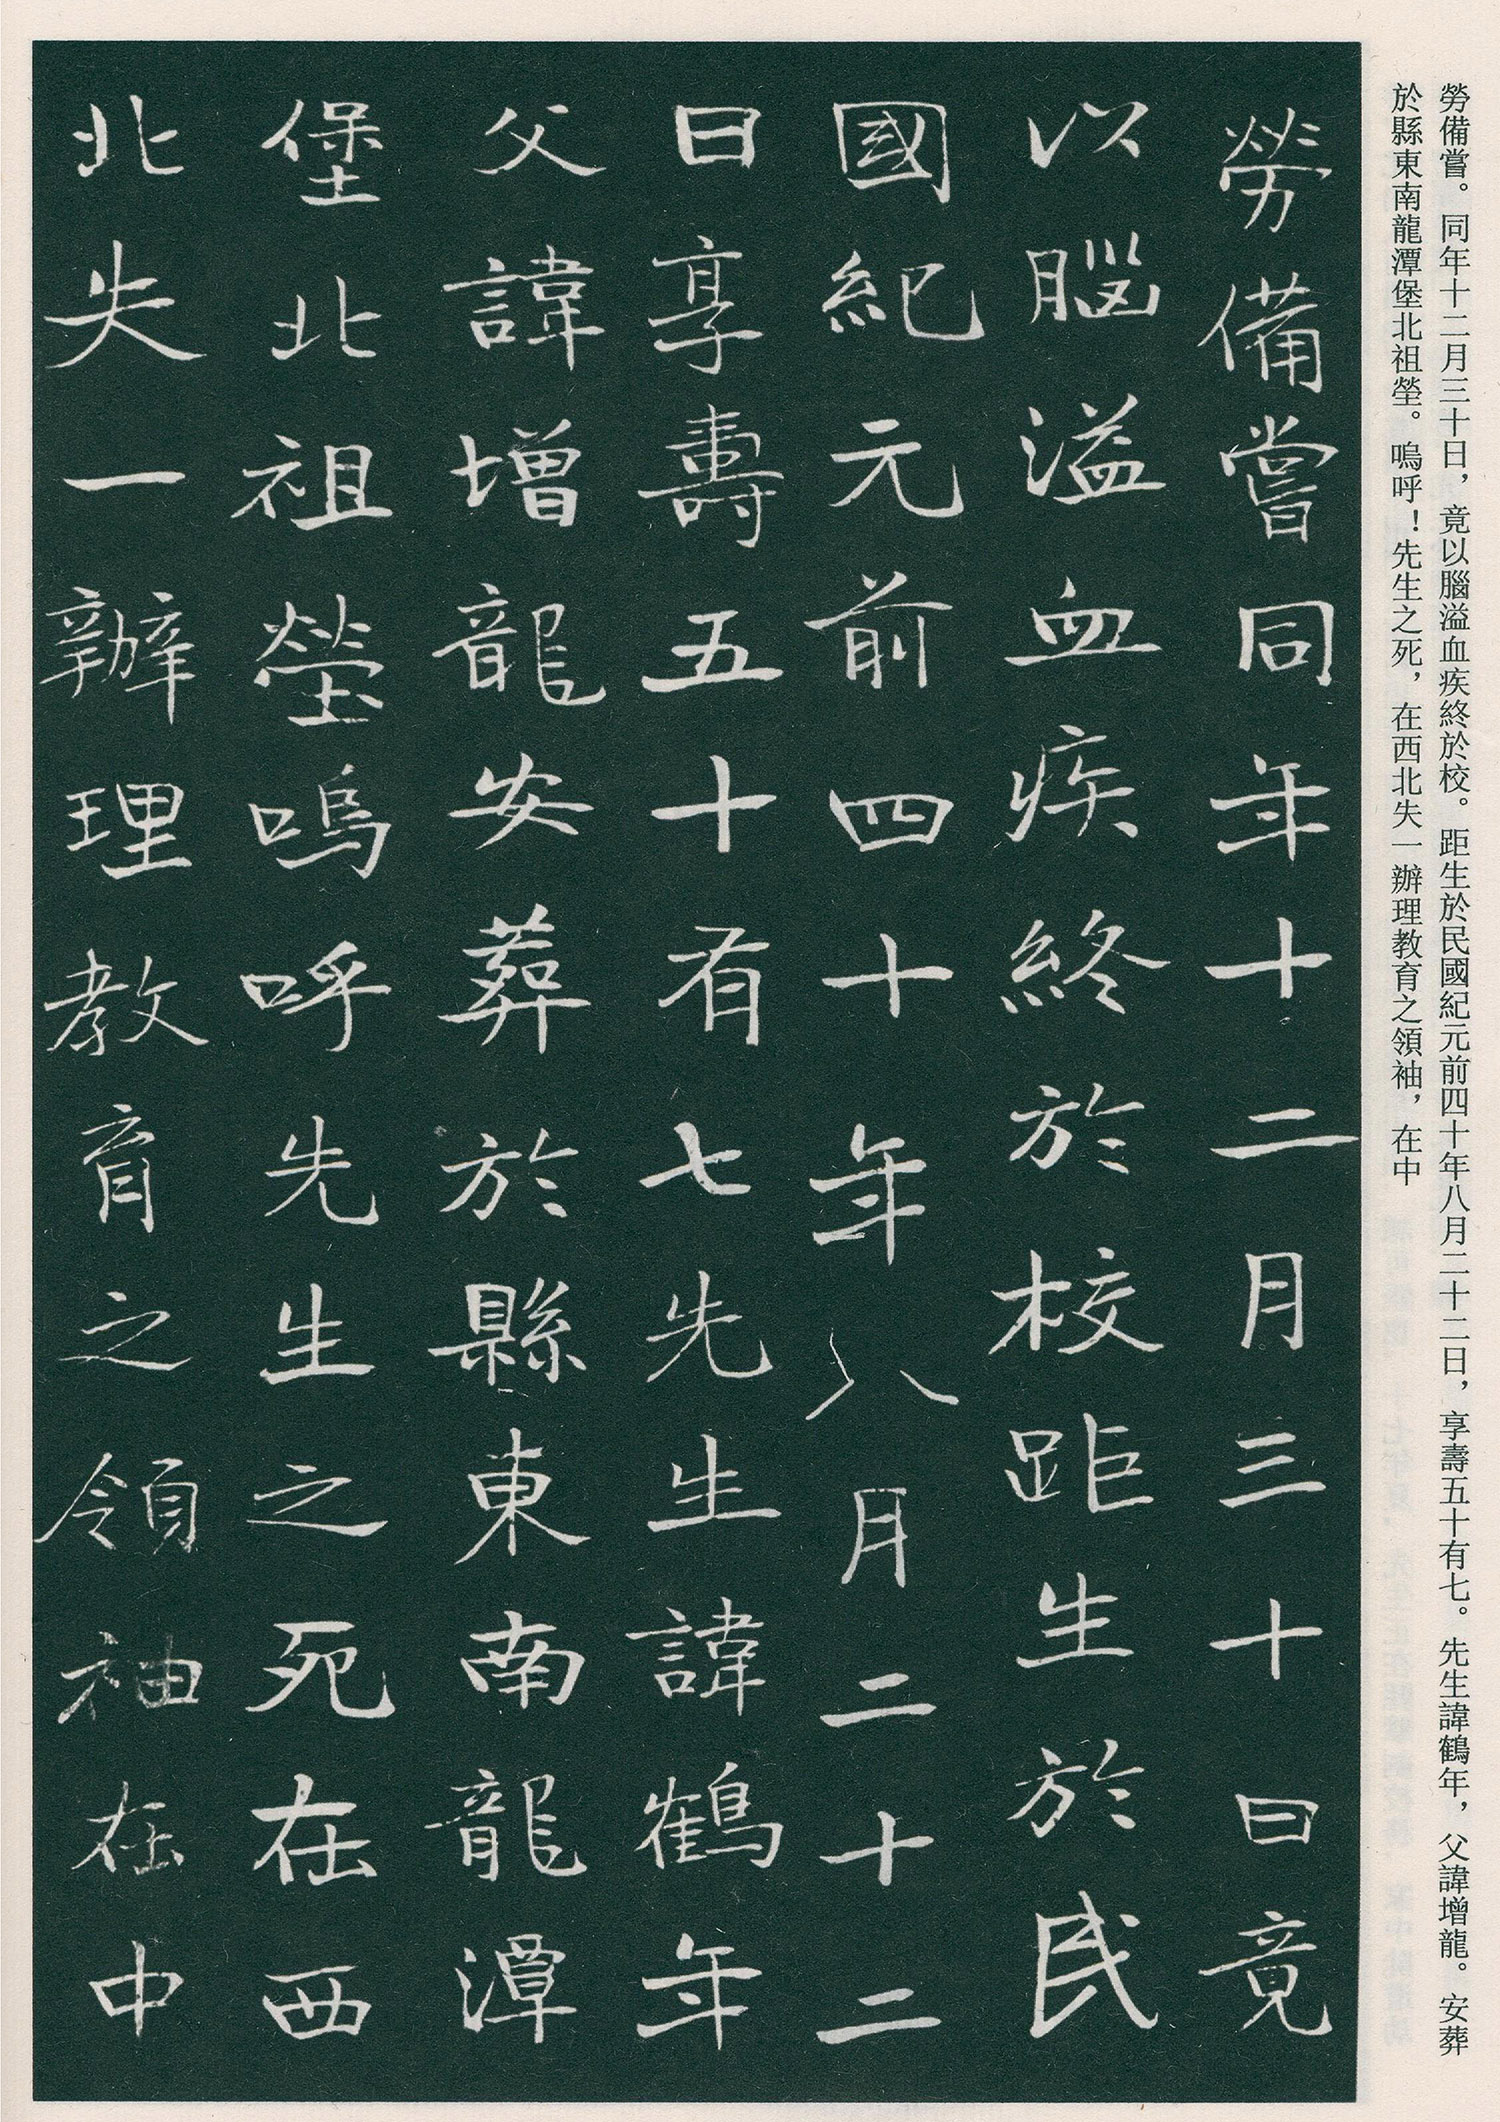 勞備嘗。同年十二月三十日，竟以腦溢血疾終於校。距生於民國紀元前四十年八月二十二日，享壽五十有七。先生諱鶴年，父諱增龍。安葬
於縣東南龍潭堡北祖塋。嗚呼！先生之死，在西北失一辦理教育之領袖，在中
勞備嘗同年十二月三十日竟
以腦溢血疾終於校距生於民
國紀元前四十年八月二十二
日享壽五十有七先生諱鶴年
父諱增龍安葬於縣東南龍潭
堡北祖塋嗚呼先生之死在西
北失一辦理教育之領袖在中